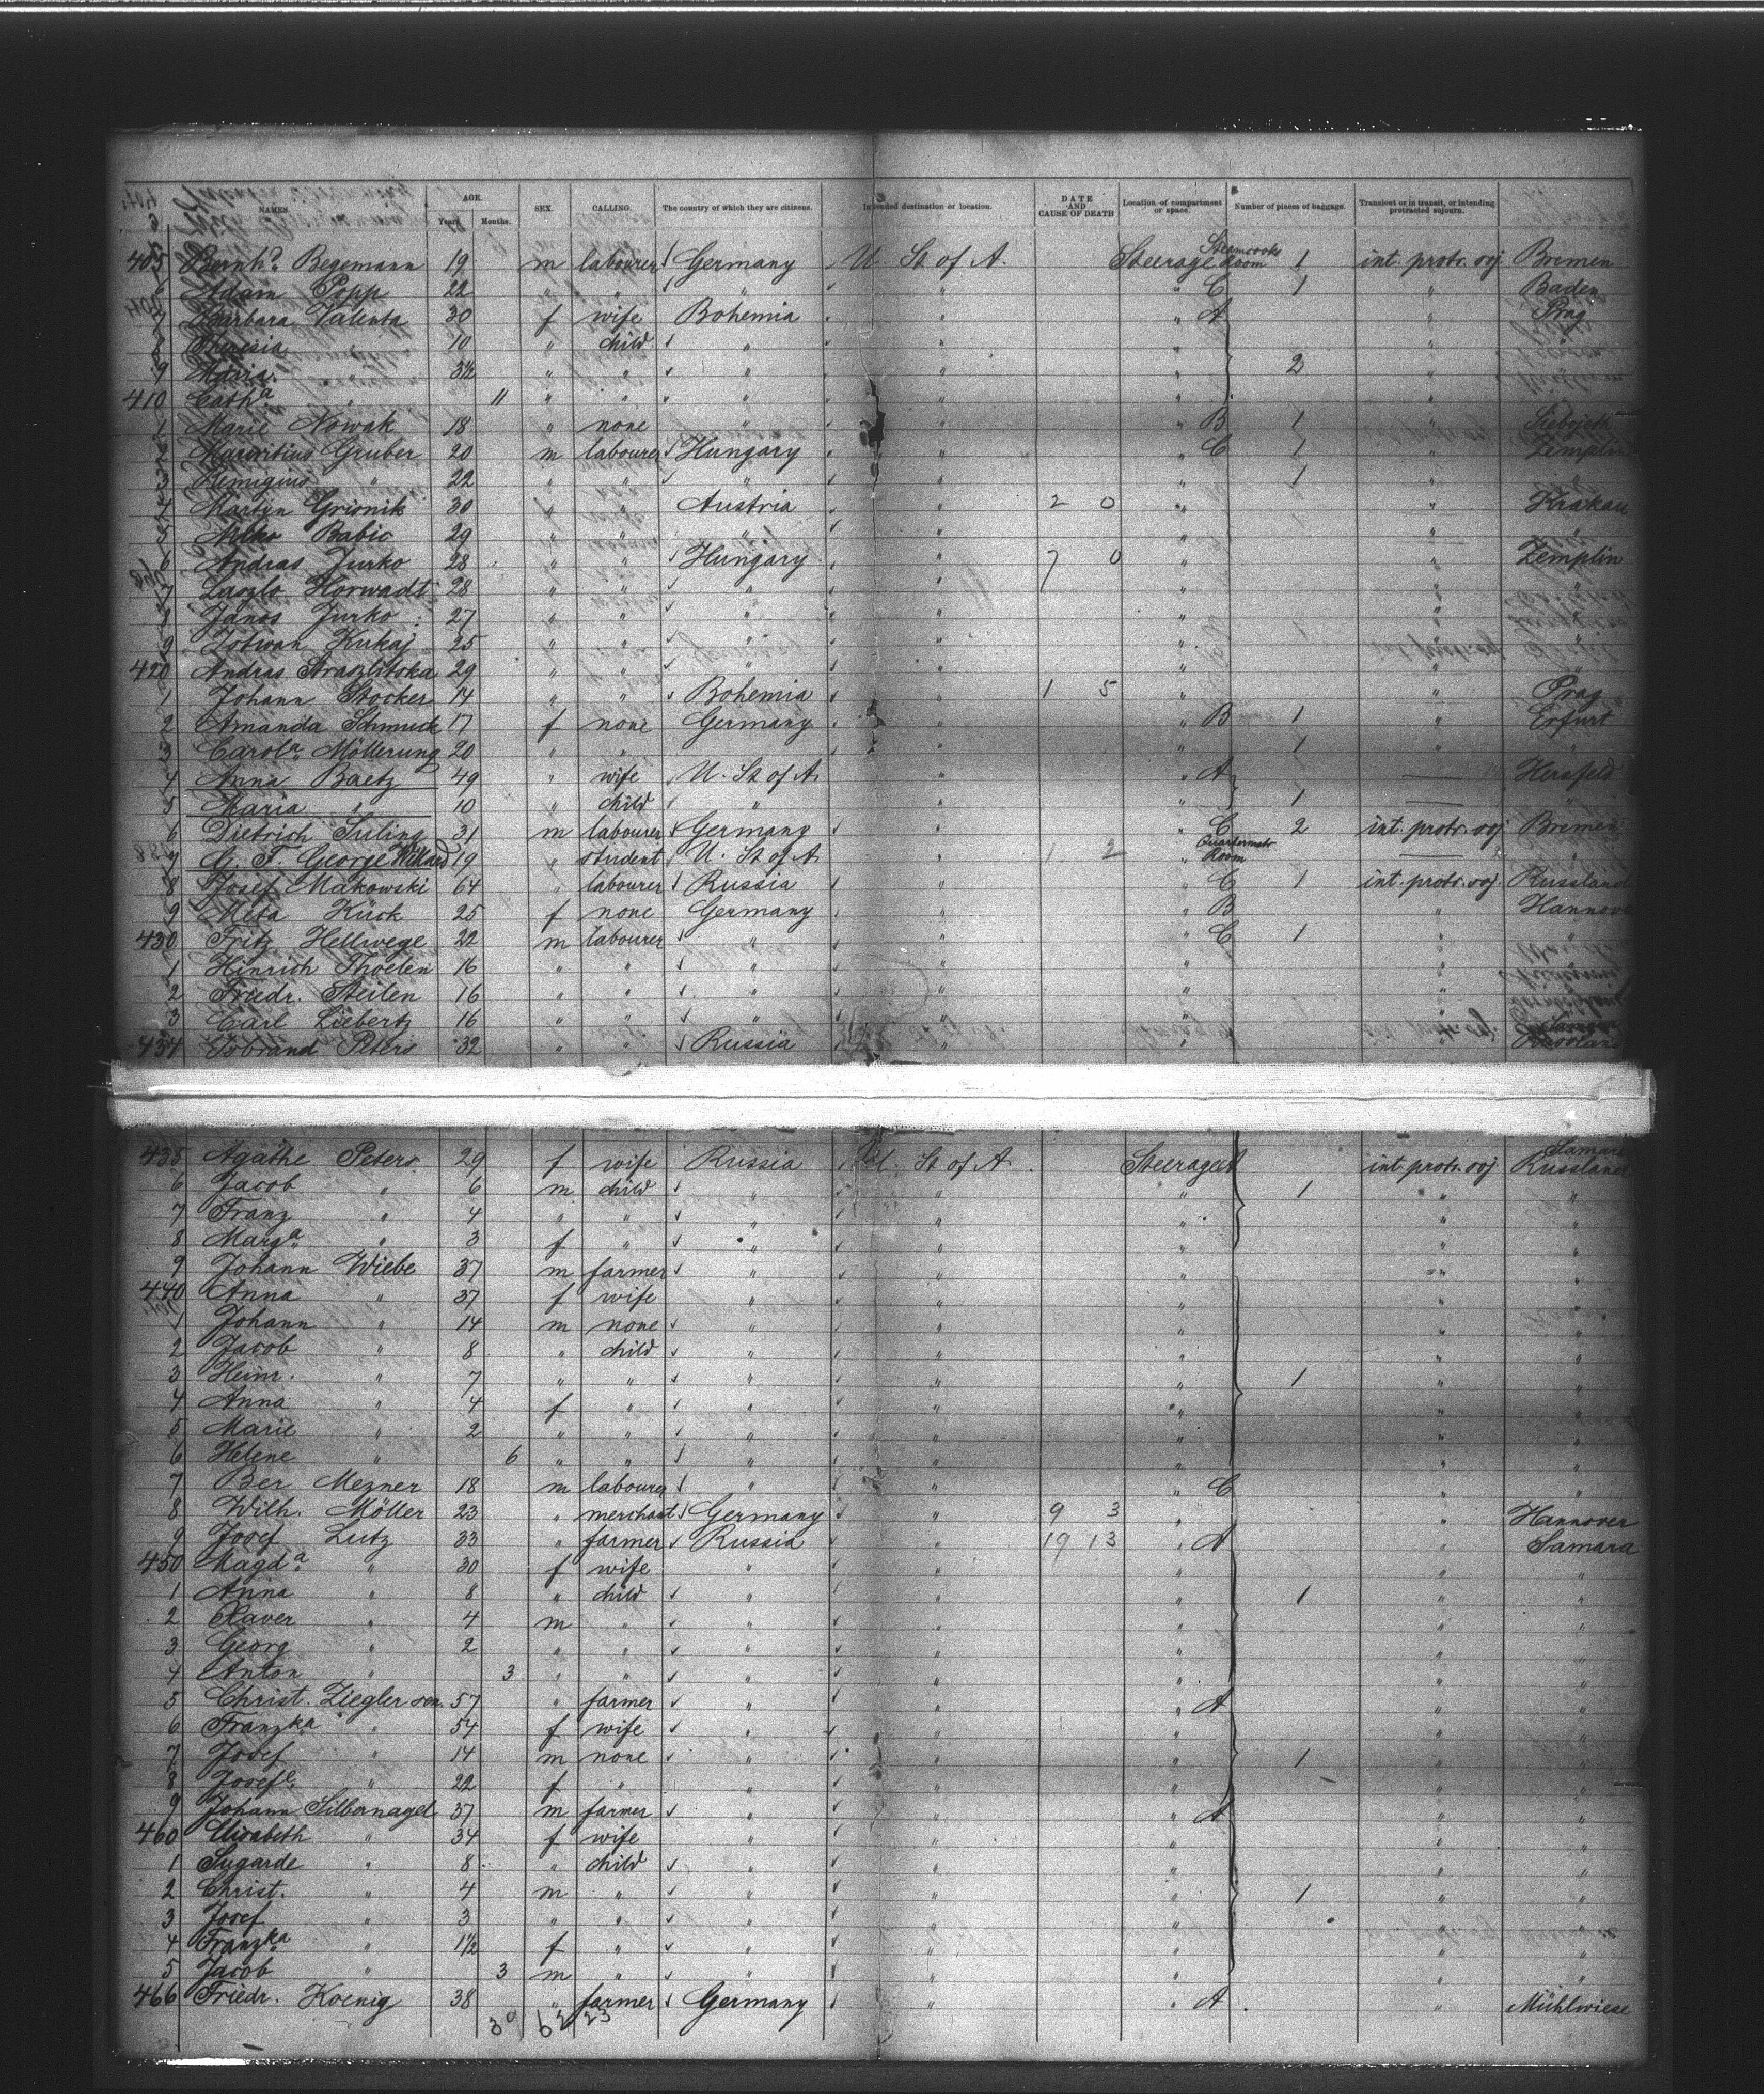 NAMES. AGE Years. Months. SEX. CALLING. The country of which they are citizens. Intended destination or location. DATE AND CAUSE OF DEATH Location of compartment or space. Number of pieces of baggage. Transient or in transit, or intending protracted sojourn.
405 Bernhd. Begemann 19 m labourer Germany U. St of A. Steerage Steamcooks Room 1 int. protr. soj Bremen
6 Adam Popp 22 " " " " " C 1 " Baden
7 Barbara Valenta 30 f wife Bohemia " " A " Prag
8 Theresia " 10 " child " " " " "
9 Maria " 3½ " " " " " 2 " "
410 Catha. " 11 " " " " " " "
1 Marie Nowak 18 " none " " " B 1 "
2 Mauritius Gruber 20 m labourer Hungary " " C 1 " Zemplin
3 Remigius " 22 " " " " " 1 " "
4 Martyn Grionik 30 " " Austria " 2 0 " " Krakau
5 Mitko Babic 29 " " " " " " "
6 Andras Jurko 28 " " Hungary " 7 0 " " Zemplin
7 Laszlo Horwadt 28 " " " " " " "
8 Janos Jurko 27 " " " " " " "
9 Istwan Kukaj 25 " " " " " " "
420 Andras Straszlitska 29 " " " " " " "
1 Johann Stocker 14 " " Bohemia " 1 5 " " Prag
2 Amanda Schmuck 17 f none Germany " " B 1 " Erfurt
3 Carola. Möllerung 20 " " " " " 1 " "
4 Anna Baetz 49 " wife U. St of A. " " A — Hersfeld
5 Maria " 10 " child " " " 1 — "
6 Dietrich Suling 31 m labourer Germany " " C 2 int. protr. soj Bremen
7 G. F. George Willard 19 " student U. St of A " 1 2 " Quartermstr Room — "
8 Josef Makowski 64 " labourer Russia " " C 1 int. protr. soj. Russland
9 Meta Kück 25 f none Germany " " B " Hannover
430 Fritz Hellwege 22 m labourer " " " C 1 " "
1 Hinrich Thoelen 16 " " " " " "
2 Friedr. Steilen 16 " " " " " "
3 Carl Liebertz 16 " " " " " "
434 Isbrand Peters 32 " " Russia " " " Samara Russland
435 Agathe Peters 29 f wife Russia U. St of A. Steerage A int protr. soj Samara Russland
6 Jacob " 6 m child " " " 1 " "
7 Franz " 4 " " " " " " "
8 Marga. " 3 f " " " " " "
9 Johann Wiebe 37 m farmer " " " " "
440 Anna " 37 f wife " " " " "
1 Johann " 14 m none " " " " "
2 Jacob " 8 " child " " " " "
3 Heinr. " 7 " " " " " 1 " "
4 Anna " 4 f " " " " " "
5 Marie " 2 " " " " " " "
6 Helene " 6 " " " " " " "
7 Ber Mezner 18 m labourer " " " C " "
8 Wilh. Möller 23 " merchant Germany " 9 3 " " Hannover
9 Josef Lutz 33 " farmer Russia " 19 13 " A " Samara
450 Magda. " 30 f wife " " " " "
1 Anna " 8 " child " " " 1 " "
2 Xaver " 4 m " " " " " "
3 Georg " 2 " " " " " " "
4 Anton " 3 " " " " " " "
5 Christ. Ziegler sen. 57 " farmer " " " A " "
6 Franzka " 54 f wife " " " " "
7 Josef " 14 m none " " " 1 " "
8 Josefe. " 22 f " " " " " "
9 Johann Silbernagel 37 m farmer " " " A " "
460 Elisabeth " 34 f wife " " " " "
1 Sugarde " 8 " child " " " " "
2 Christ. " 4 m " " " " 1 " "
3 Josef " 3 " " " " " " "
4 Franzka " 1½ f " " " " " "
5 Jacob " 3 m " " " " " "
466 Friedr. Koenig 38 " farmer Germany " " A " Mühlwiese
30 62 23